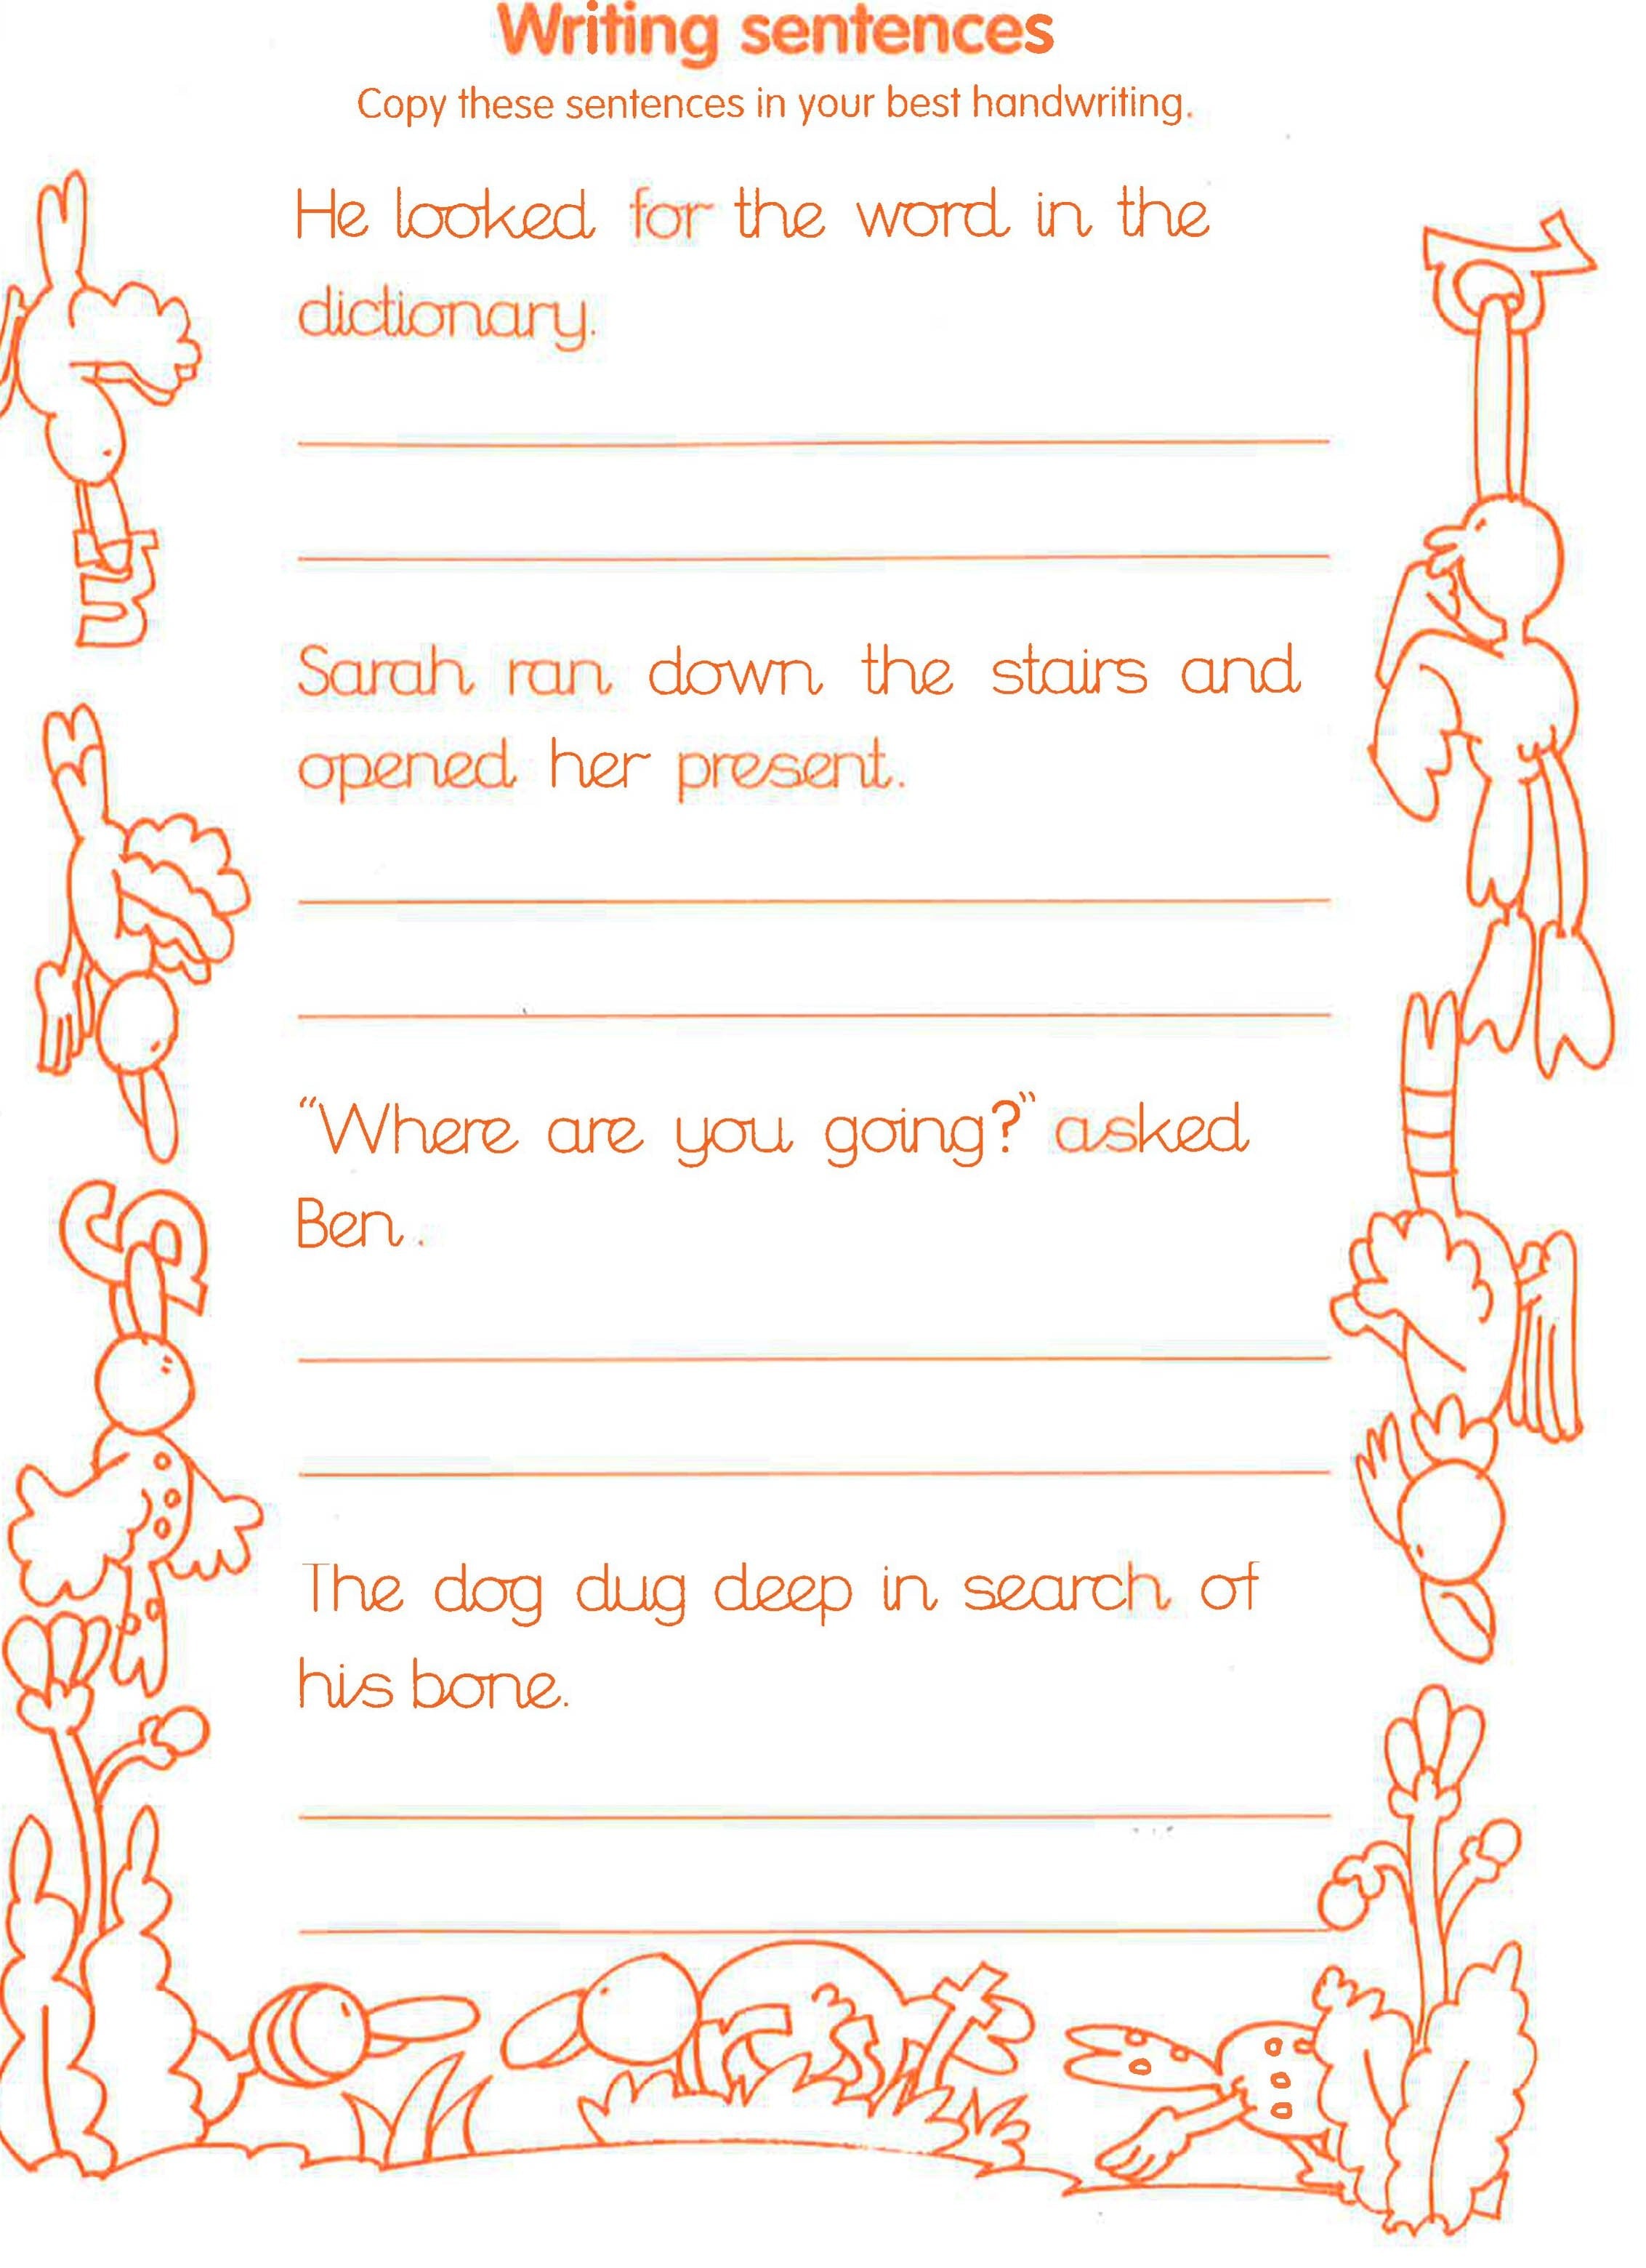 Writing sentences
Copy these sentences in your best handwriting.
He looked for the word in the
dictionary.
Sarah ran down the stairs and
opened her present.
“Where are you going?” asked
Ben.
The dog dug deep in search of
his bone.